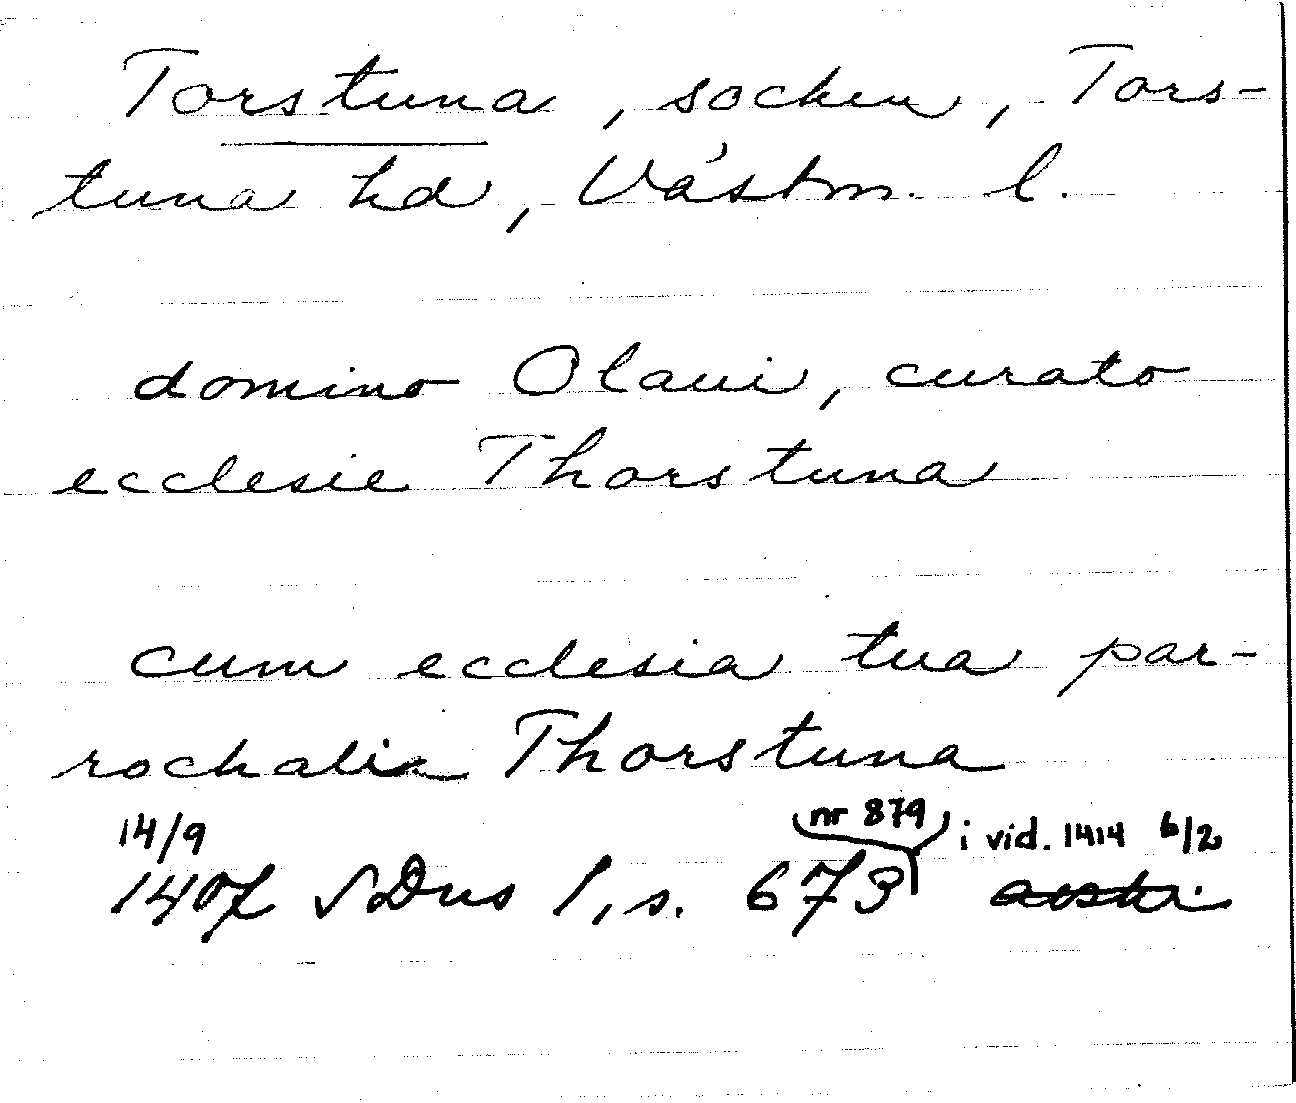 Torstuna, socken, Tors-
tuna hd, Västm. l.
domino Olaui, curato
ecclesie Thorstuna
cum ecclesia tua par-
rochalia Thorstuna
14/9 nr 879 i vid. 1414 6/2
1407 SDns 1, s. 673